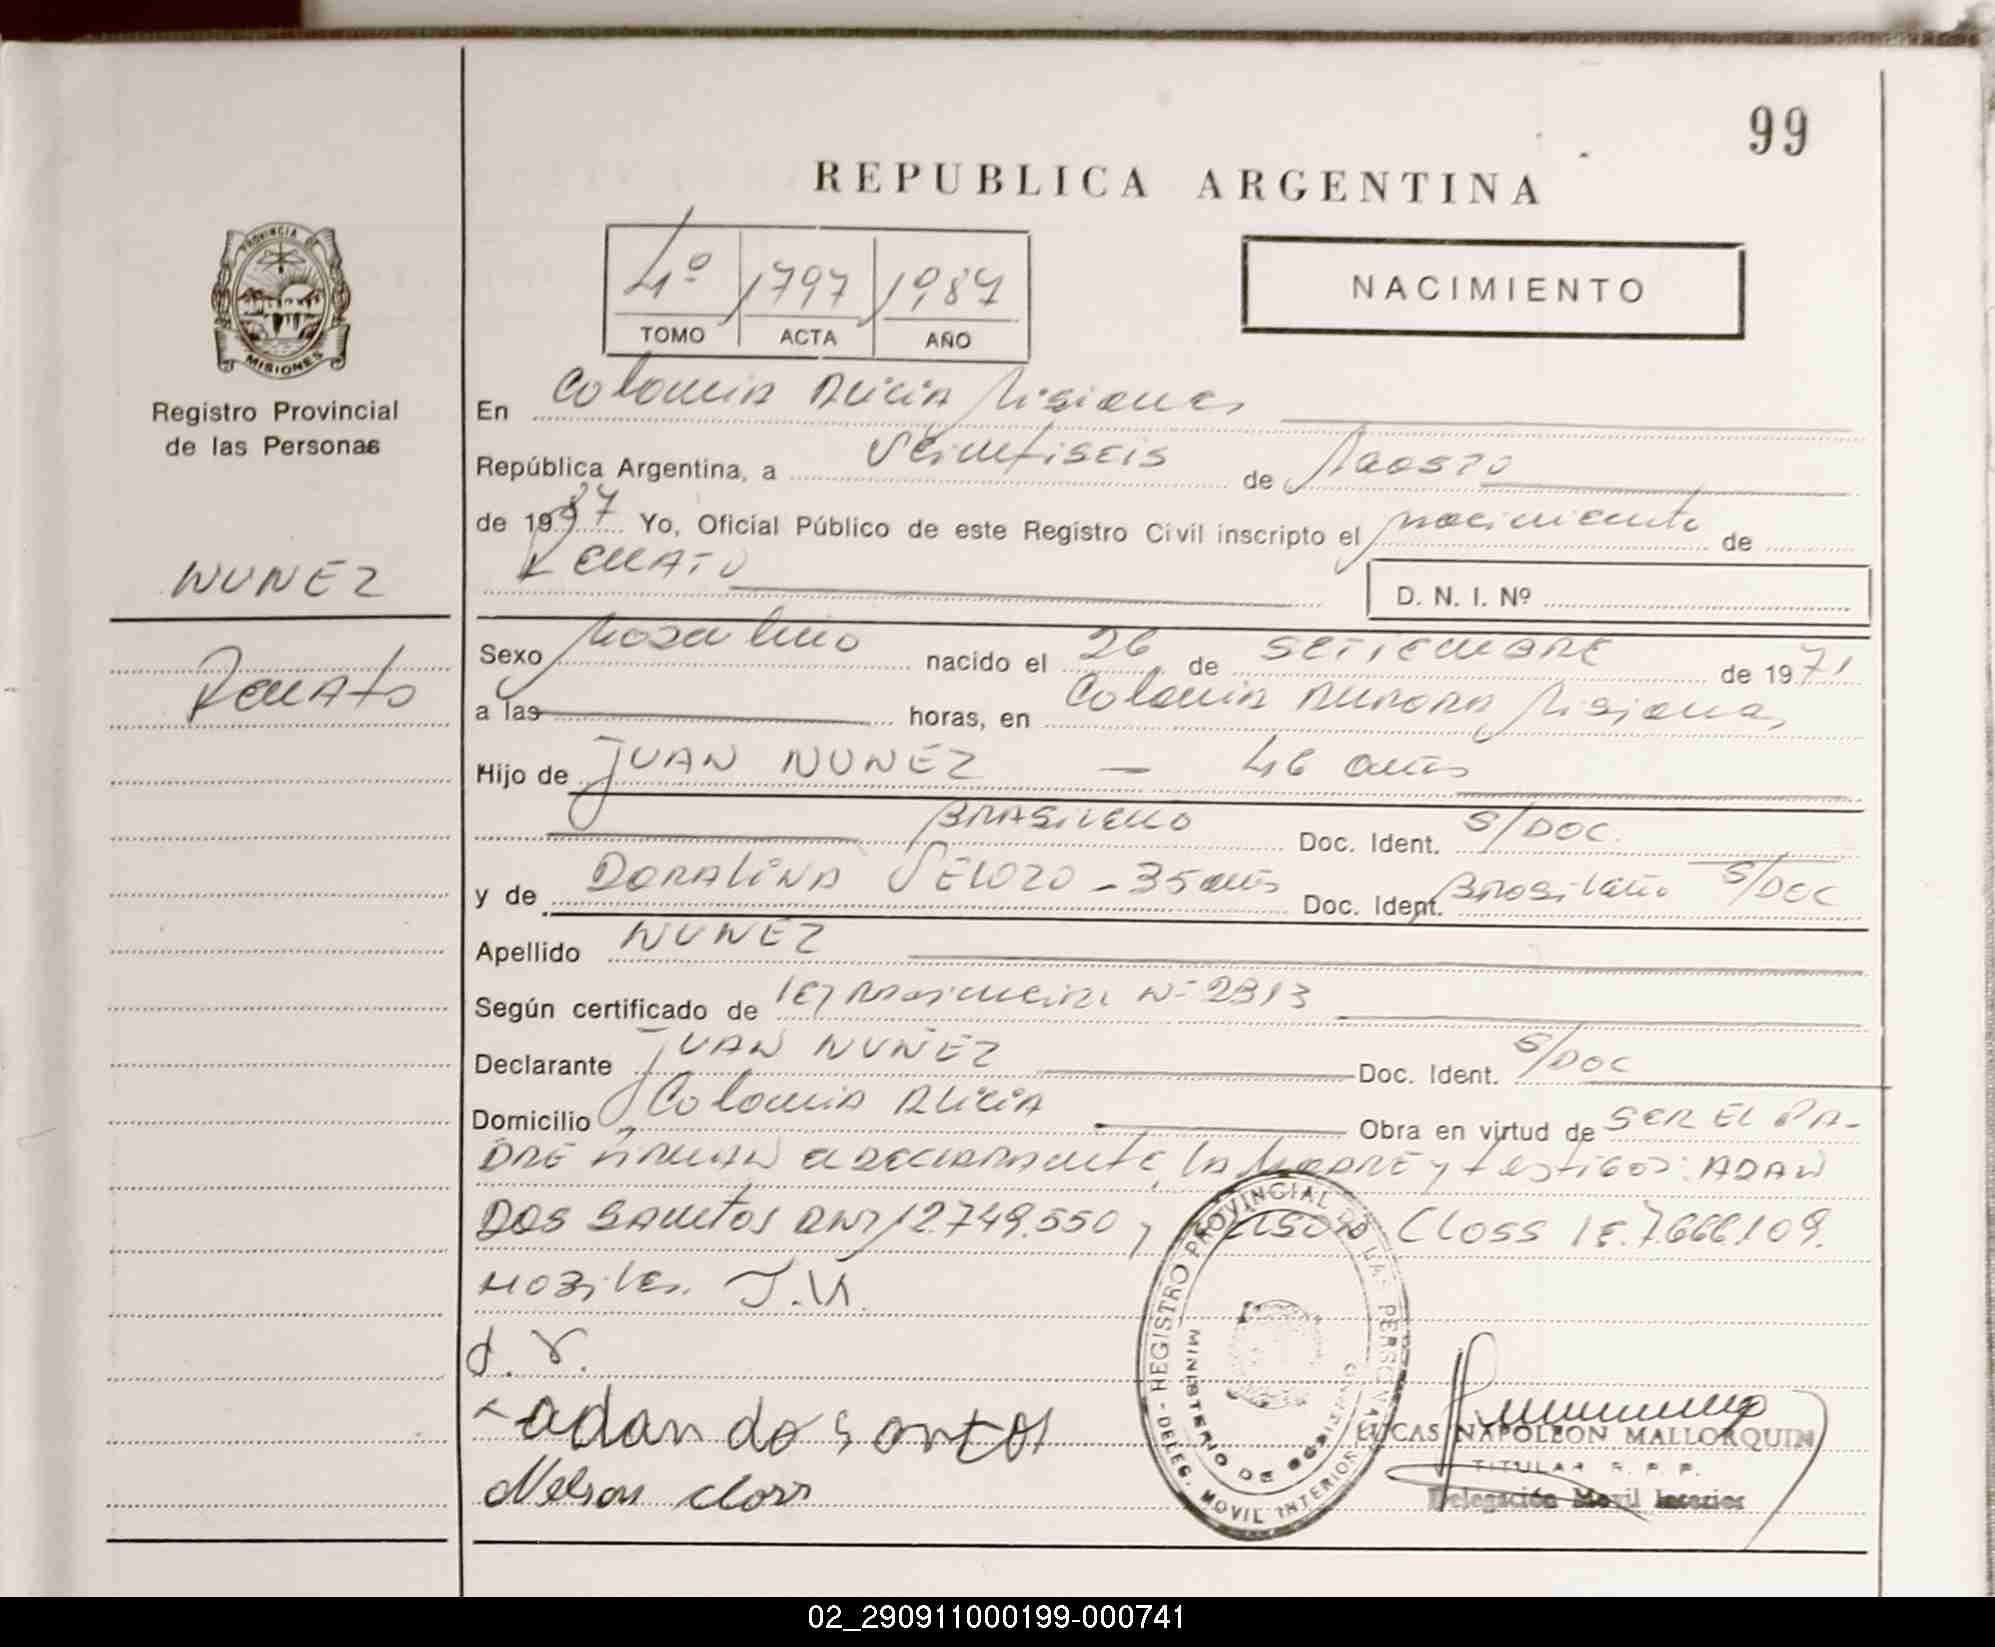 99
REPUBLICA ARGENTINA
PROVINCIA DE
MISIONES
Registro Provincial
de las Personas
4º 1797 1987
TOMO ACTA AÑO
NACIMIENTO
En Colonia Alicia Misiones
República Argentina, a Veintiseis de Agosto
de 1987 Yo, Oficial Público de este Registro Civil inscripto el nacimiento de
Renato
D. N. I. Nº
NUNEZ
Renato
Sexo Masculino nacido el 26 de SETIEMBRE de 1971
a las horas, en Colonia Aurora Misiones
Hijo de JUAN NUNEZ — 46 años
BRASILEÑO Doc. Ident. S/DOC.
y de DORALINA VELOZO - 35 años Doc. Ident. Brasileño S/DOC
Apellido NUNEZ
Según certificado de Nº 2313
Declarante JUAN NUNEZ Doc. Ident. S/DOC
Domicilio Colonia Alicia Obra en virtud de SER EL PA-
DRE FIRMAN el DECLARANTE, la MADRE y testigos: ADAN
DOS SANTOS DNI 12.749.550 y Closs IE. 7.666.109.
J.N.
d. v.
adan do santos
Nelson closs
REGISTRO PROVINCIAL DE LAS PERSONAS
MINISTERIO DE GOBIERNO
- DELEG. MOVIL INTERIOR
LUCAS NAPOLEON MALLORQUIN
TITULAR R. P. P.
Delegación Movil Interior
02_290911000199-000741